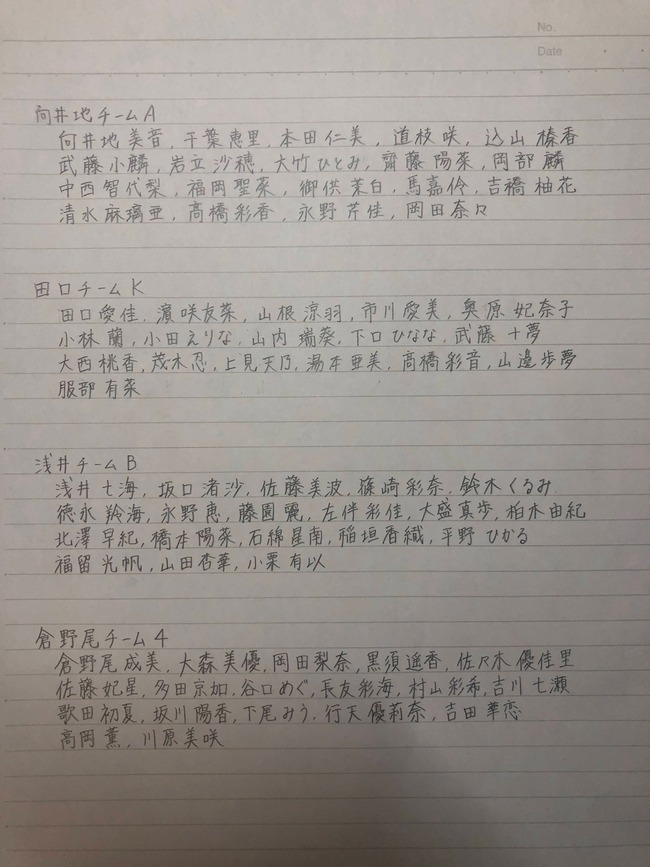 No.
Date
向井地チームA
向井地 美音, 千葉 恵里, 本田 仁美, 道枝 咲, 込山 榛香
武藤 小麟, 岩立 沙穂, 大竹 ひとみ, 齋藤 陽菜, 岡部 麟
中西 智代梨, 福岡 聖菜, 御供 茉白, 馬 嘉伶, 吉橋 柚花
清水 麻璃亜, 髙橋 彩香, 永野 芹佳, 岡田 奈々
田口チームK
田口 愛佳, 濵 咲友菜, 山根 涼羽, 市川 愛美, 奥原 妃奈子
小林 蘭, 小田 えりな, 山内 瑞葵, 下口 ひなな, 武藤 十夢
大西 桃香, 茂木 忍, 上見 天乃, 湯本 亜美, 高橋 彩音, 山邊 歩夢
服部 有菜
浅井チームB
浅井 七海, 坂口 渚沙, 佐藤 美波, 篠崎 彩奈, 鈴木 くるみ
徳永 羚海, 永野 恵, 藤園 麗, 左伴 彩佳, 大盛 真歩, 柏木 由紀
北澤 早紀, 橋本 陽菜, 石綿 星南, 稲垣 香織, 平野 ひかる
福留 光帆, 山田 杏華, 小栗 有以
倉野尾チーム4
倉野尾 成美, 大森 美優, 岡田 梨奈, 黒須 遥香, 佐々木 優佳里
佐藤 妃星, 多田 京加, 谷口 めぐ, 長友 彩海, 村山 彩希, 吉川 七瀬
歌田 初夏, 坂川 陽香, 下尾 みう, 行天 優莉奈, 吉田 華恋
高岡 薫, 川原 美咲